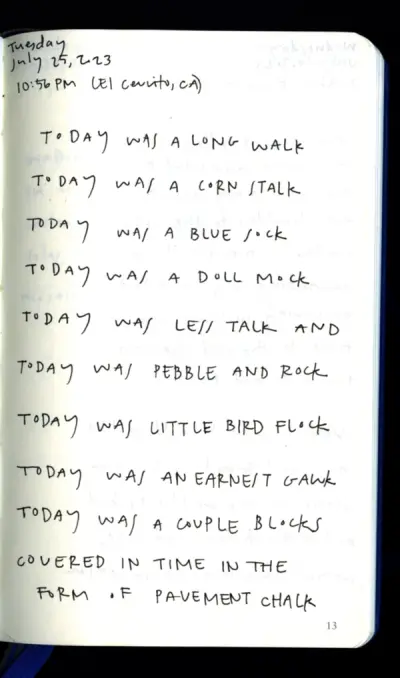 Tuesday
July 25, 2023
10:56 PM (El Cerrito, CA)
TODAY WAS A LONG WALK
TODAY WAS A CORN STALK
TODAY WAS A BLUE SOCK
TODAY WAS A DOLL MOCK
TODAY WAS LESS TALK AND
TODAY WAS PEBBLE AND ROCK
TODAY WAS LITTLE BIRD FLOCK
TODAY WAS AN EARNEST GAWK
TODAY WAS A COUPLE BLOCKS
COVERED IN TIME IN THE
FORM OF PAVEMENT CHALK
13